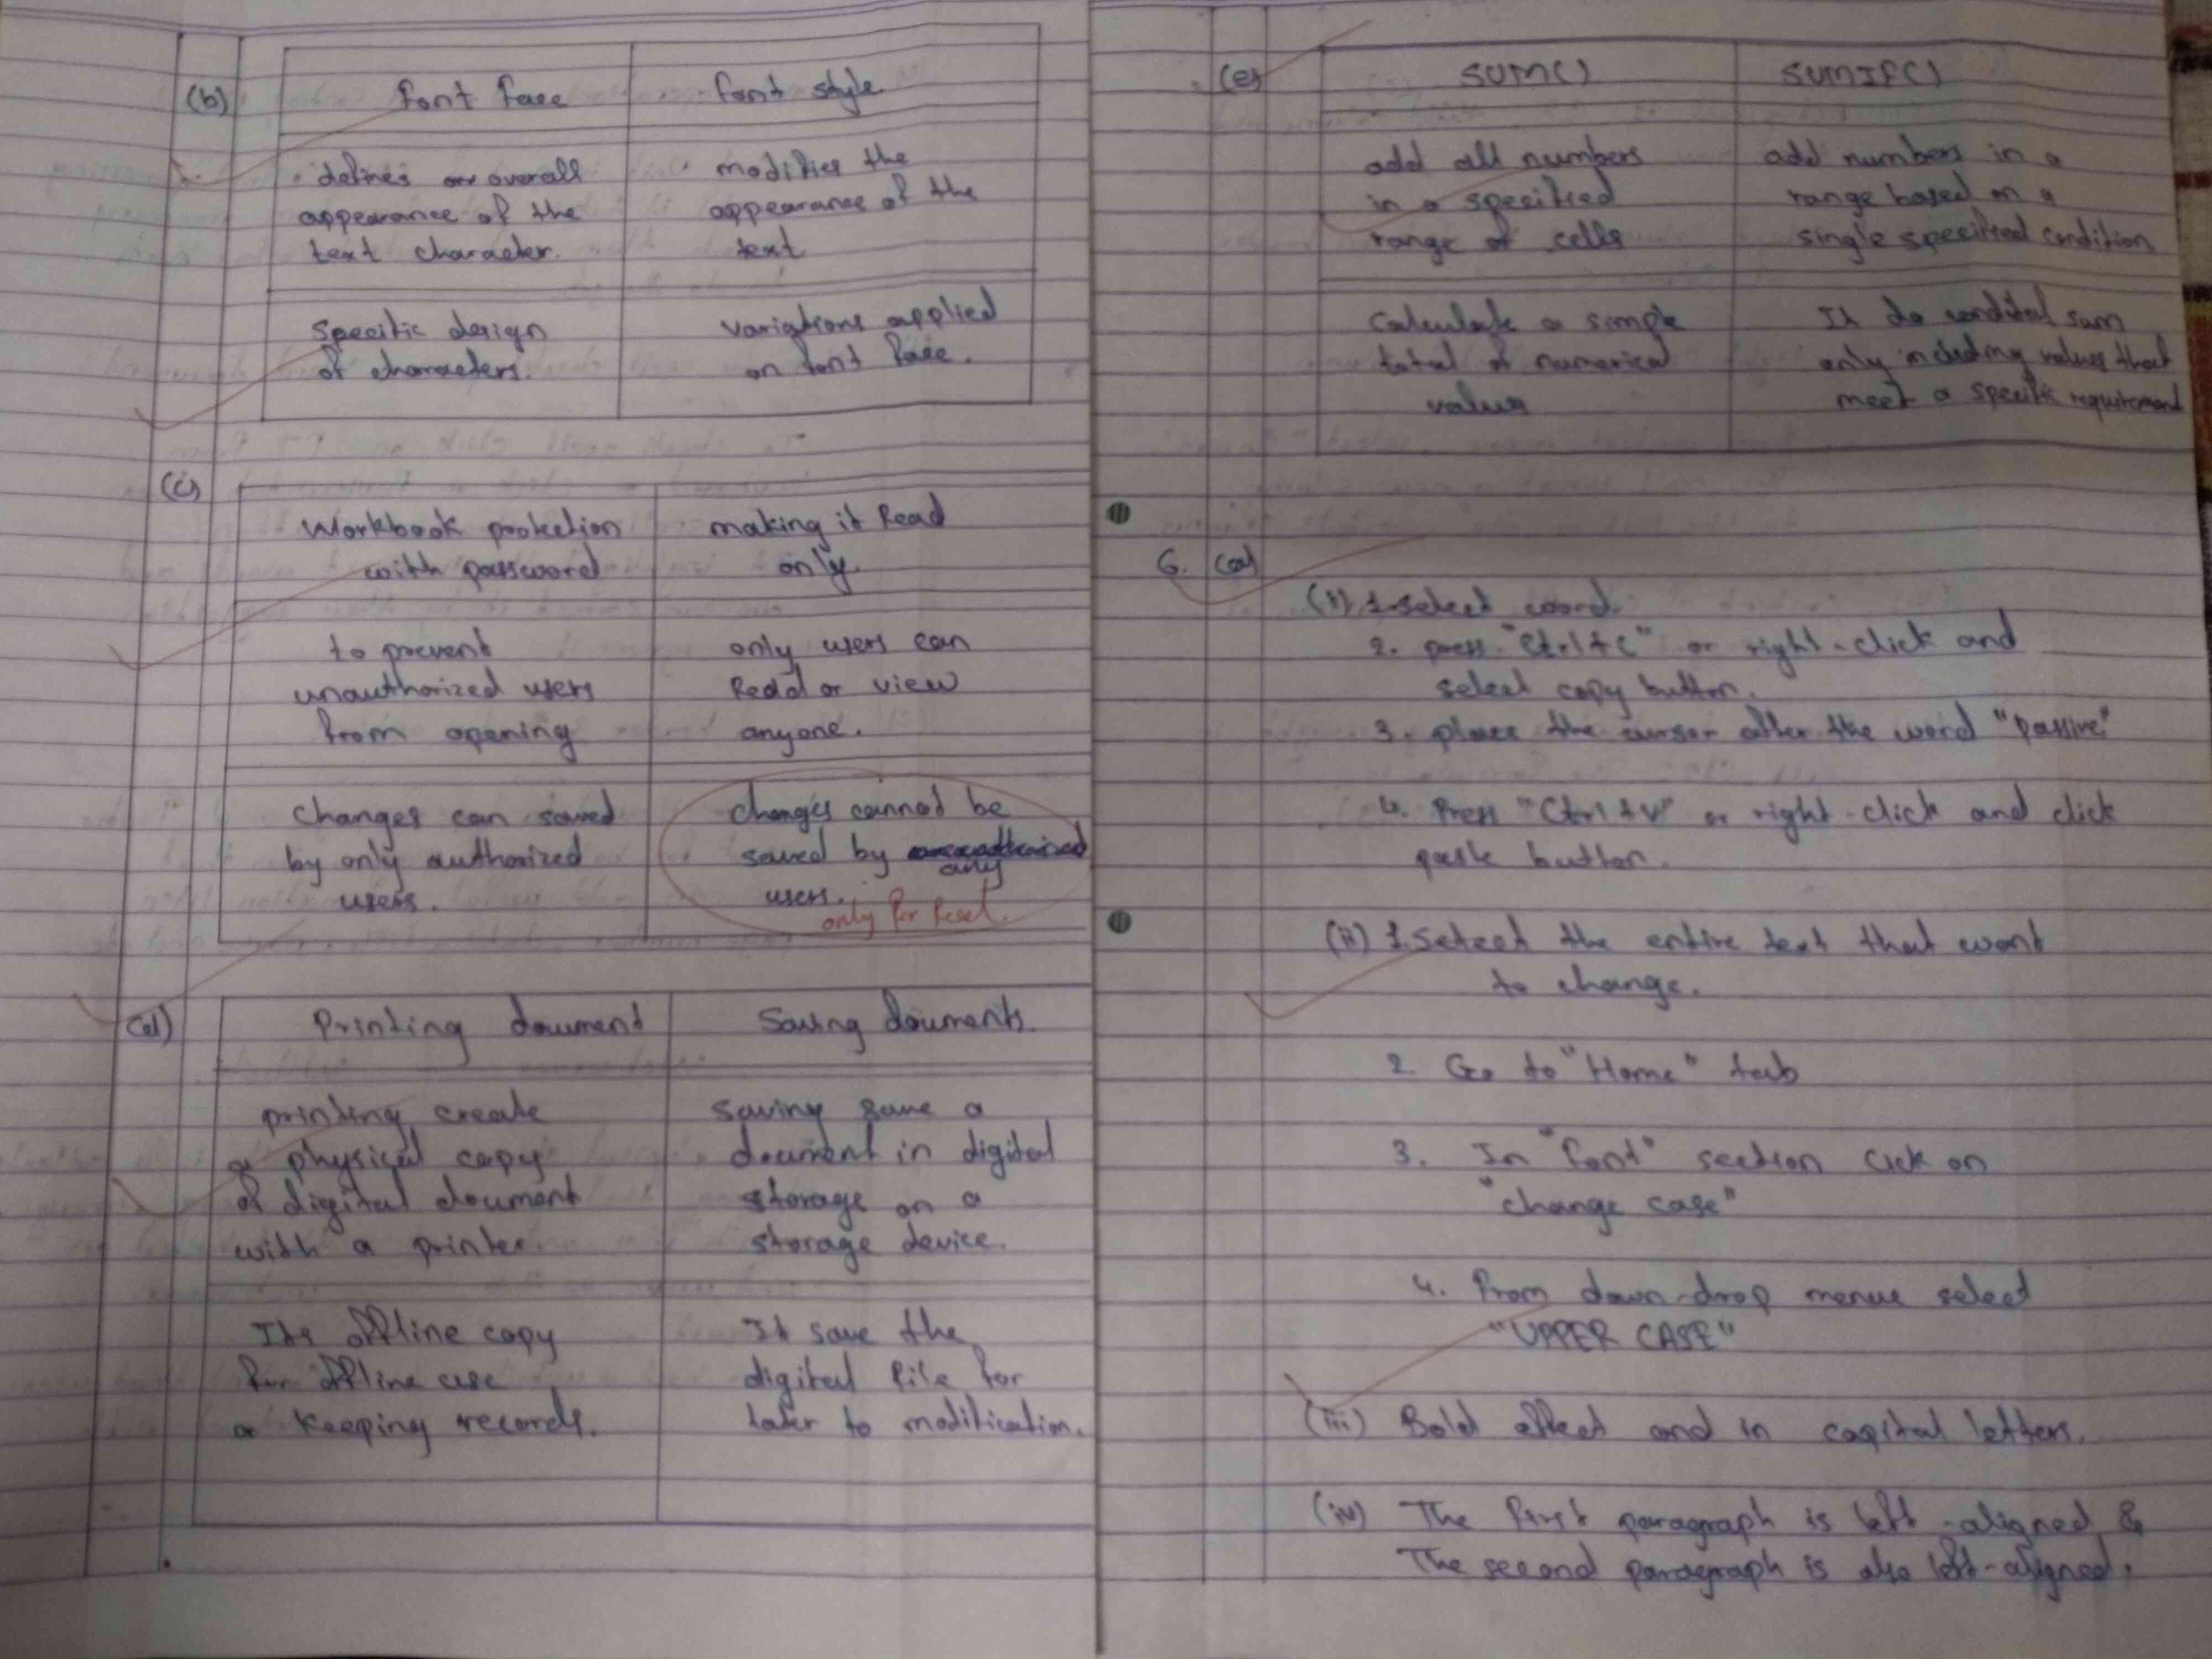 (b)
font face
font style
. defines overall
appearance of the
text character.
. modifies the
appearance of the
text
Specific design
of characters.
variations applied
on font face.
(c)
Workbook protection
with password
making it Read
only.
to prevent
unauthorized users
from opening
only users can
Read or view
anyone.
Changes can saved
by only authorized
users.
changes cannot be
saved by
any
users.
only for Read.
(d)
Printing document
Saving douments.
printing create
a physical copy
of digital doument
with a printer.
Saving save a
doument in digital
storage on a
storage device.
Its offline copy
for offline use
or keeping records.
It save the
digital file for
later to modification.
(e)
SUM()
SUMIF()
add all numbers
in a specified
range of cells
add numbers in a
range based on a
single specified condition
Calculate a simple
total of numerical
values
It do condital sum
only including values that
meet a specific requirement
6. (a)
(i) 1. Select word.
2. press "Ctrl+C" or right-click and
select copy button.
3. place the cursor after the word "passive"
4. Press "Ctrl+V" or right-click and click
paste button.
(ii) 1. Select the entire text that want
to change.
2. Go to "Home" tab
3. In "font" section click on
"change case"
4. From down-drop menue select
"UPPER CASE"
(iii) Bold effect and in capital letters.
(iv) The first paragraph is left-aligned &
The second paragraph is also left-aligned.